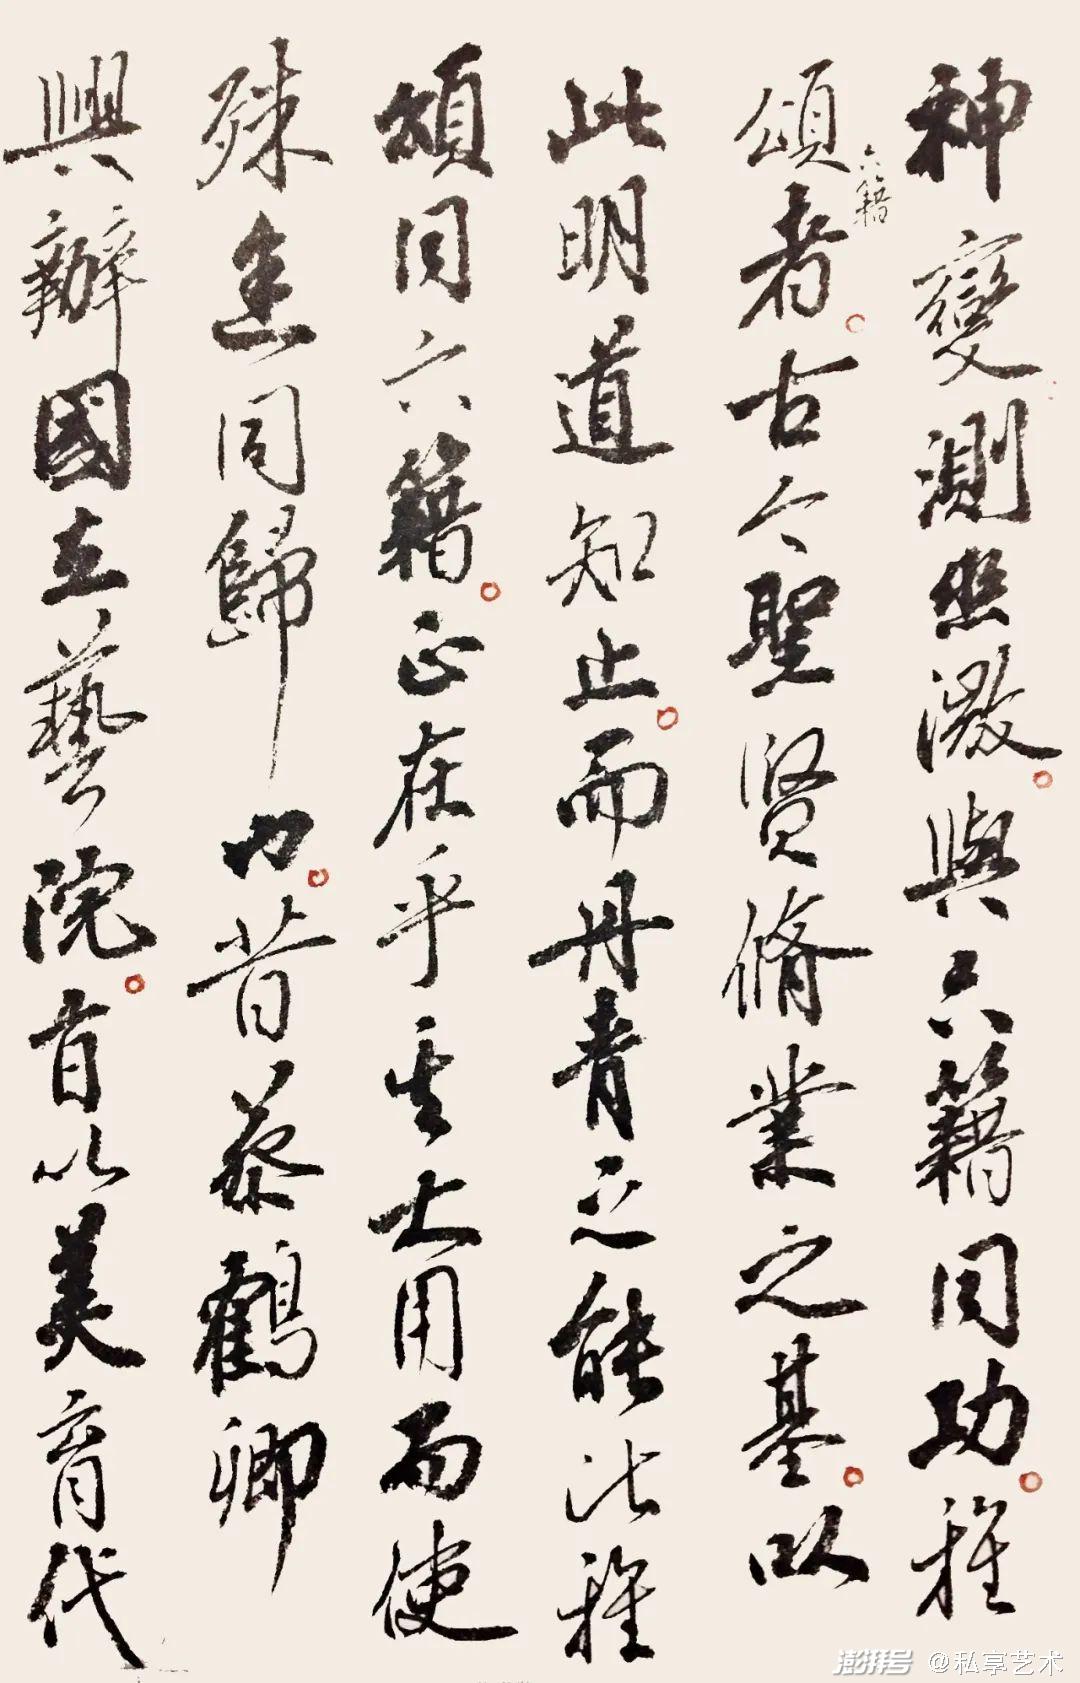 神變測幽微與六籍同功雅
頌者古今聖賢脩業之基以
六籍
此明道知止而丹青之能比雅
頌同六籍正在乎其大用而使
殊途同歸也昔蔡鶴卿
興辦國立藝院首以美育代
澎湃号 @私享艺术